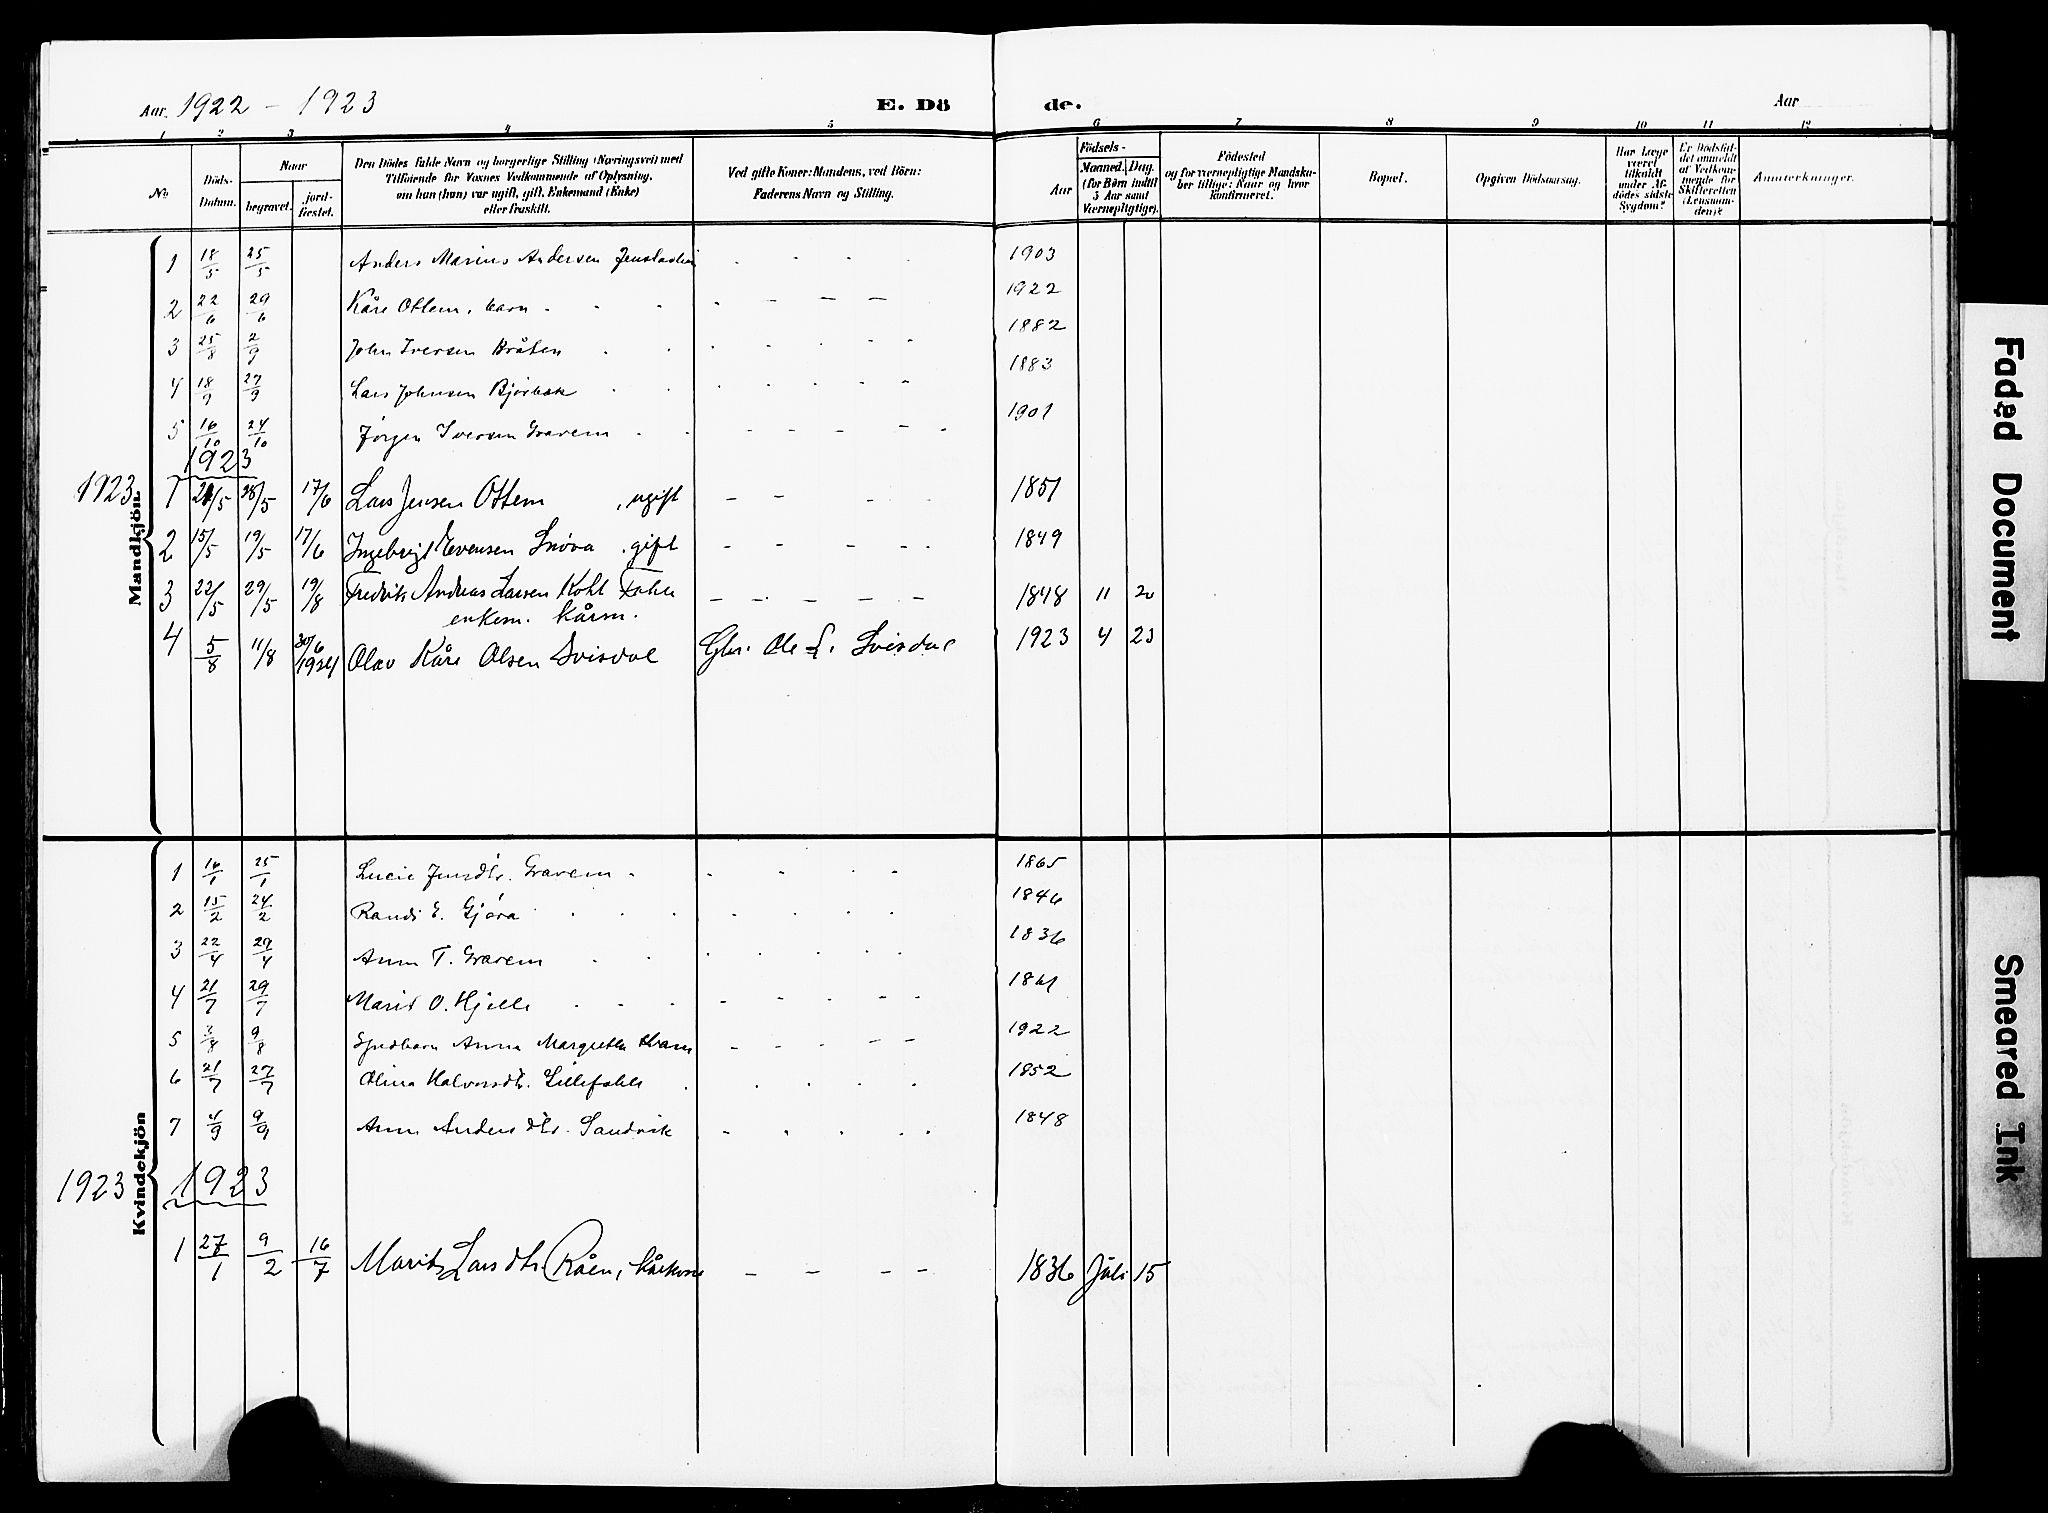 Aar. 1922 – 1923 E. Dö de. Aar
1 2 3 4 5 6 7 8 9 10 11 12
No
Döds-
Datum.
Naar
begravet.
jord-
fæstet.
Den Dödes fulde Navn og borgerlige Stilling (Næringsvei) med
Tilföiende for Voxnes Vedkommende af Oplysning,
om han (hun) var ugift, gift, Enkemand (Enke)
eller fraskilt.
Ved gifte Koner: Mandens, ved Börn:
Faderens Navn og Stilling.
Födsels-
Aar
Maaned. Dag.
(for Børn indtil
3 Aar samt
Værnepligtige).
Födested
og for værnepligtige Mandsku-
ber tillige: Naar og hvor
konfirmeret.
Bopæl.
Opgiven Dödsaarsag.
Har Læge
været
tilkaldt
under Af-
dödes sidste
Sygdom?
Er Dödsfal-
det anmeldt
af Vedkom-
mende for
Skifteretten
(Lensman-
den)?
Anmærkninger.
Mandkjön
1 18/5 25/5 Anders Marius Andersen 1903
2 22/6 29/6 Kåre Ottem, barn 1922
3 25/8 2/9 John Iversen Bråten 1882
4 18/9 27/9 Lars Johnsen Bjørbæk 1883
5 16/10 24/10 Jørgen Iversen Gravem 1901
1923
1923
1 21/5 28/5 17/6 Lars Jensen Ottem , ugift – – – – 1851
2 15/5 19/5 17/6 Ingebrigt Evensen Snøva . gift – – – – 1849
3 22/5 29/5 19/8 Fredrik Andreas Larsen Kohl Fahle – – – – – 1848 11 20
enkem. kårm.
4 5/8 11/8 30/6 1924 Olav Kåre Olsen Svisdal Gbr. Ole L. Svisdal 1923 4 23
Kvindekjön
1 16/1 25/1 Lucie Jensdtr. Gravem 1865
2 15/2 24/2 Randi E. Gjøra 1846
3 22/4 29/4 Anne T. Gravem 1836
4 21/7 29/7 Marit O. Hjelle 1861
5 3/8 9/8 Anna Margrethe 1922
6 21/7 27/7 Olina Halvorsdtr. Lillefahle 1852
7 4/9 9/9 Anne Andersdtr. Sandvik 1848
1923 1923
1 27/1 9/2 16/7 Marit Larsdtr. Råen, kårkone – – – – 1836 Juli 15
Faded Document
Smeared Ink